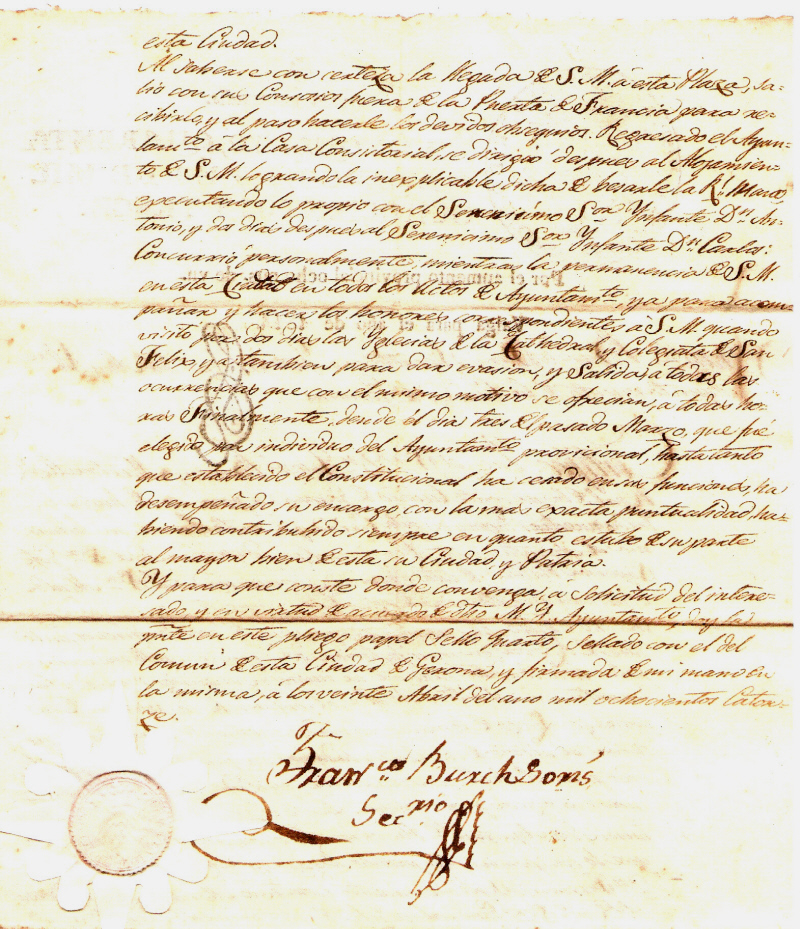 esta Ciudad.
Al saberse con certeza la llegada de S. M. á esta Plaza, sa-
lio con sus Consocios fuera de la Puerta de Francia para re-
cibirle, y al paso hacerle los devidos obsequios. Regresado el Ayun-
tamto á la Casa Consistorial, se dirigió despues al Alojamien-
to de S. M. logrando la inexplicable dicha de besarle la Rl. Mano
executando lo propio con el Serenisimo Sor Ynfante Dn. An-
tonio, y dos dias despues al Serenisimo Sor Ynfante Dn. Carlos:
Concurrió personalmente, mientras la permanencia de S. M.
en esta Ciudad en todos los Actos de Ayuntamto ya para acom-
pañar y hacer los honores correspondientes á S. M. quando
visitó por dos dias las Yglecias de la Cathedral, y Colegiata de San
Felix, ya tambien para dar evasion, y Salida á todas las
ocurrencias que con el mismo motivo se ofrecian, á todas ho-
ras Finalmente, desde el dia tres del pasado Marzo, que fué
elegido por individuo del Ayuntamto provicional, hasta tanto
que establecido el Constitucional ha cesado en sus funciones, ha
desempeñado su encargo con la mas exacta puntualidad, ha-
biendo contribuhido siempre en quanto estubo de su parte
al mayor bien de esta su Ciudad, y Patria.
Y para que conste donde convenga, á solicitud del intere-
sado, y en virtud de acuerdo de dho M. Y. Ayuntamto, doy la
pnte en este pliego papel Sello Quarto, sellado con el del
Comun de esta Ciudad de Gerona, y firmada de mi mano en
la misma, á los veinte Abril del ano mil ochocientos Cator-
ze.
Franco Burch
Secrio